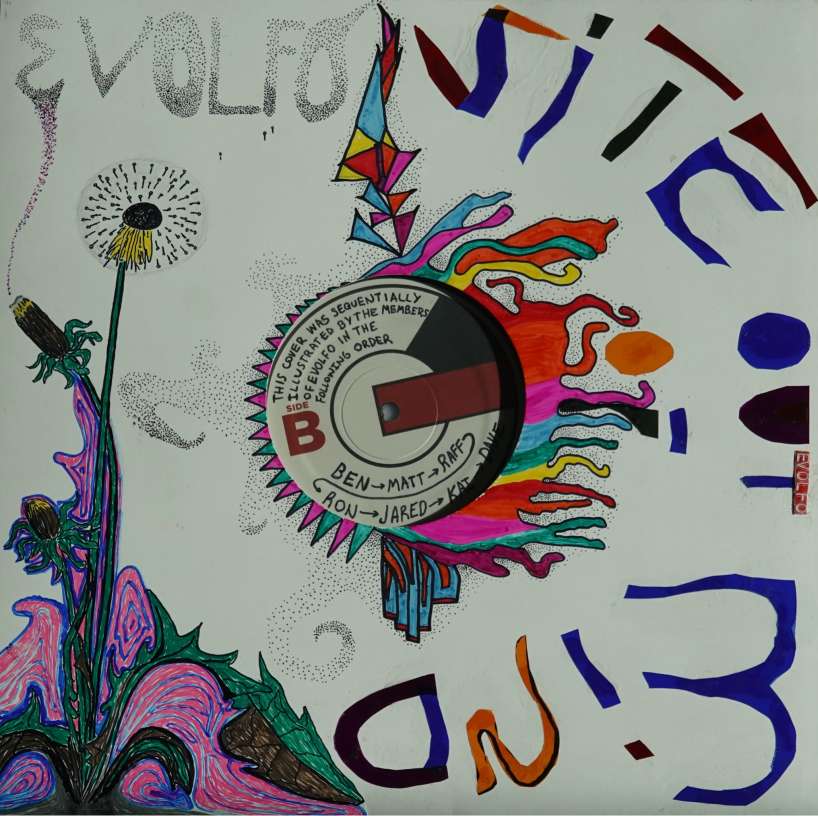 EVOLFO
SiTE
OUT
OF
MiND
EVOLFO
THIS COVER WAS SEQUENTIALLY
ILLUSTRATED BY THE MEMBERS
OF EVOLFO IN THE
FOLLOWING ORDER
SIDE
B
BEN→MATT→RAFF
RON→JARED→KAI→DAVE